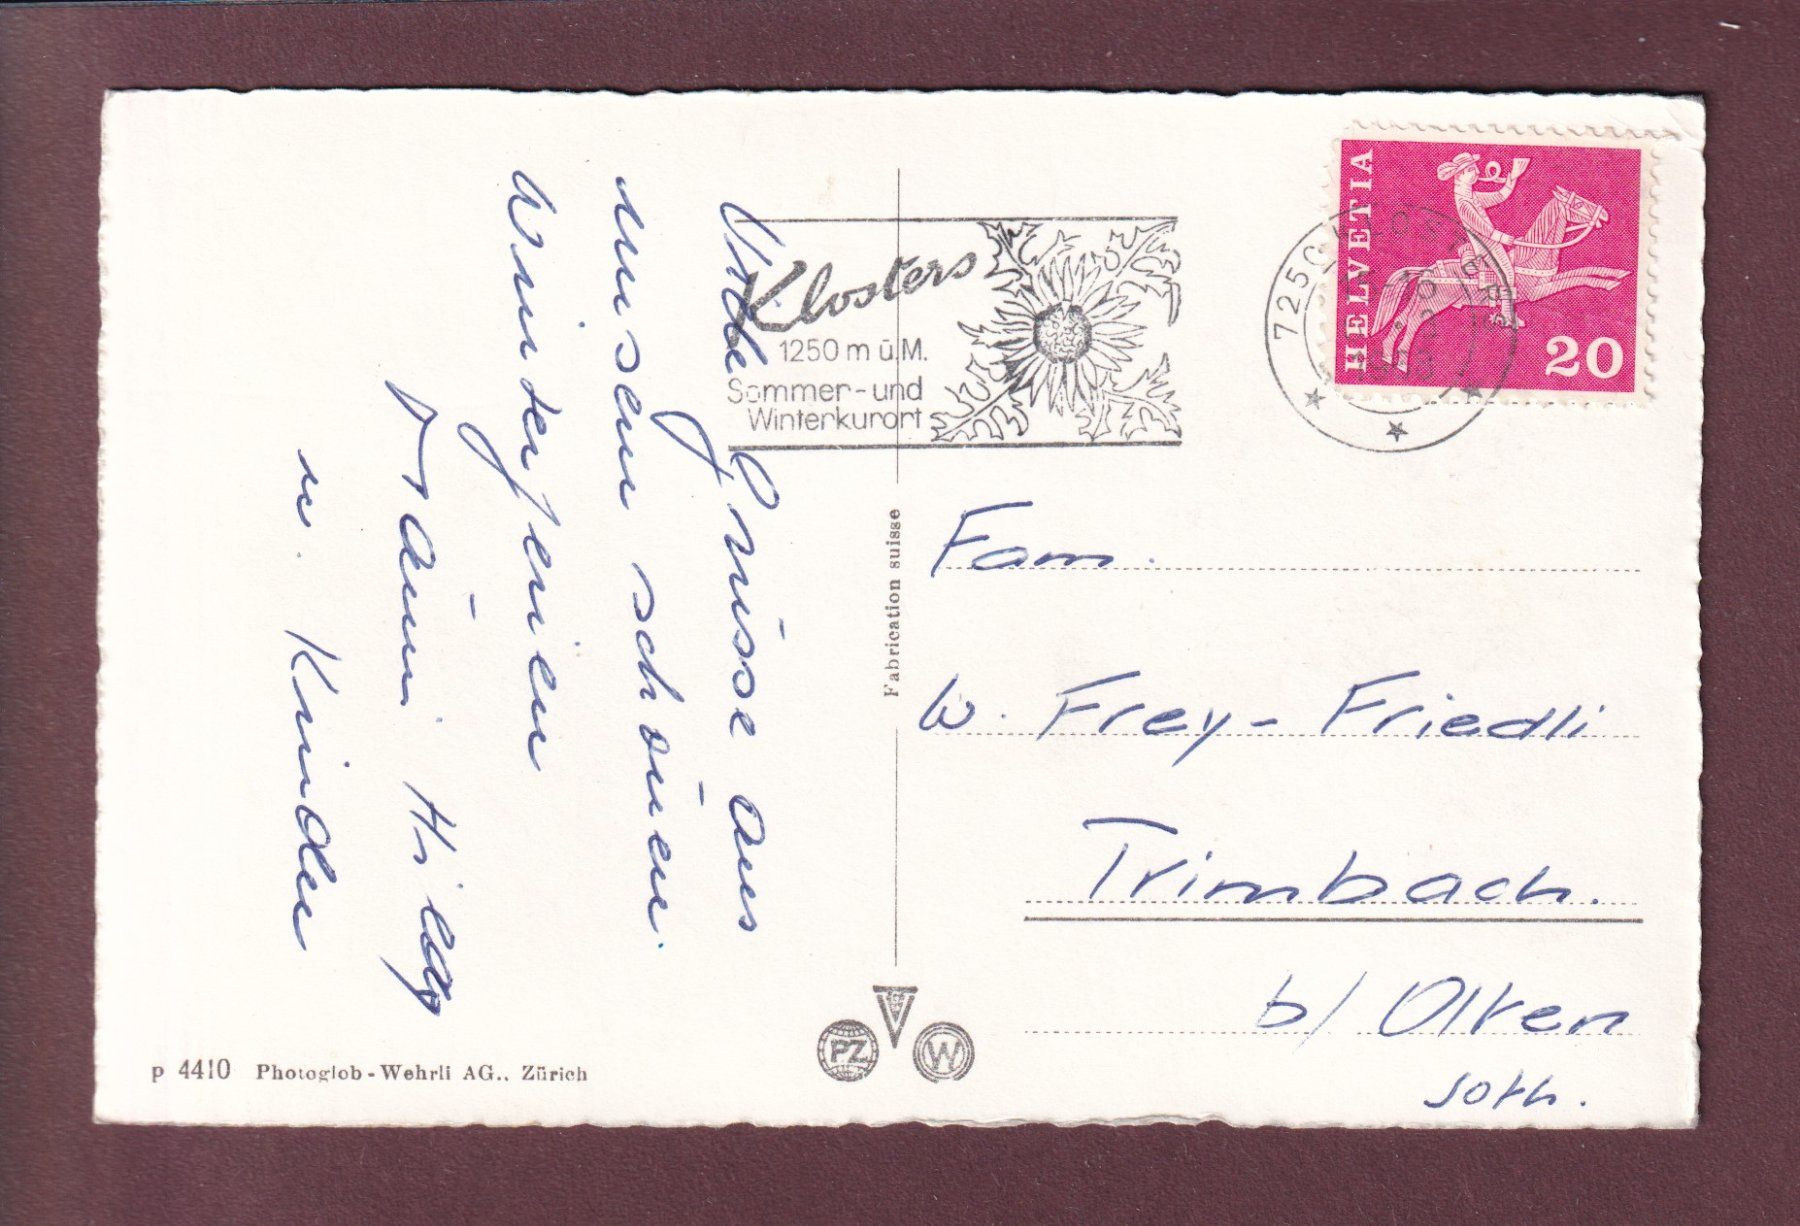 Viele Grüsse aus
unseren schönen
Winterferien
Fräuni Hildy
u. Kinder
Klosters
1250 m ü.M.
Sommer- und
Winterkurort
HELVETIA
20
7250 KLOSTERS
Fabrication suisse
Fam.
W. Frey-Friedli
Trimbach.
b/ Olten
soth.
PZ
W
p 4410 Photoglob-Wehrli AG., Zürich